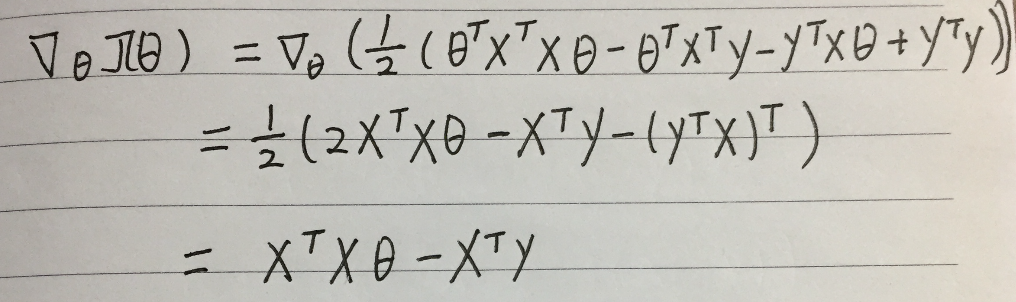 ∇_θ J(θ) = ∇_θ (½ (θᵀXᵀXθ − θᵀXᵀy − yᵀXθ + yᵀy))
= ½ (2XᵀXθ − Xᵀy − (yᵀX)ᵀ)
= XᵀXθ − Xᵀy